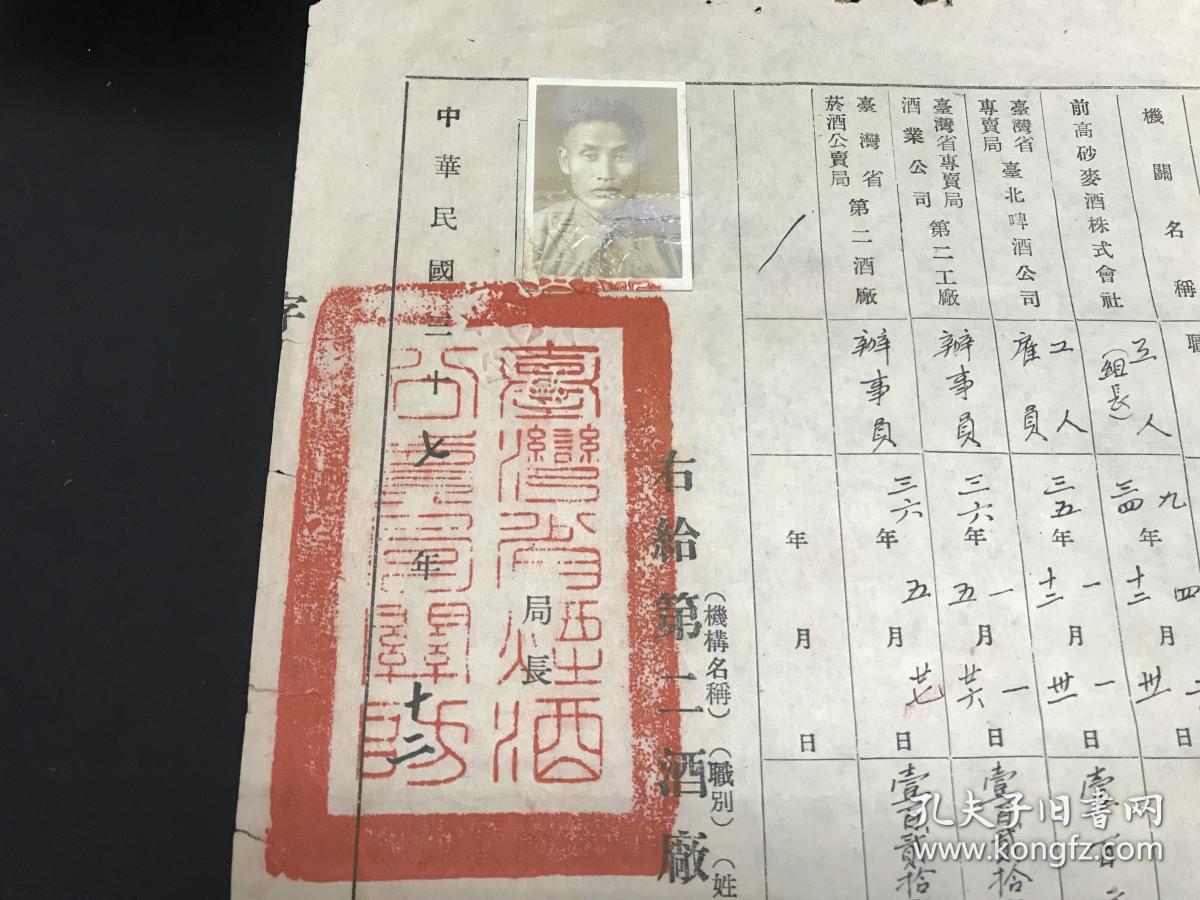 機關名稱
職
前高砂麥酒株式會社
工人
（組長）
九
三四年
四
十二月
卅日
臺灣省專賣局臺北啤酒公司
工人
雇員
三五年
一
十二月
一
卅日
臺灣省專賣局酒業公司第二工廠
辦事員
三六年
一
五月
一
廿六日
壹百貳拾
臺灣省菸酒公賣局第二酒廠
辦事員
三六年
五月
廿七日
壹百貳拾
年
月
日
右給第二酒廠
（機構名稱）（職別）（姓
局長
臺灣省菸酒
公賣局關防
中華民國三十七年十二
字
孔夫子旧书网
www.kongfz.com